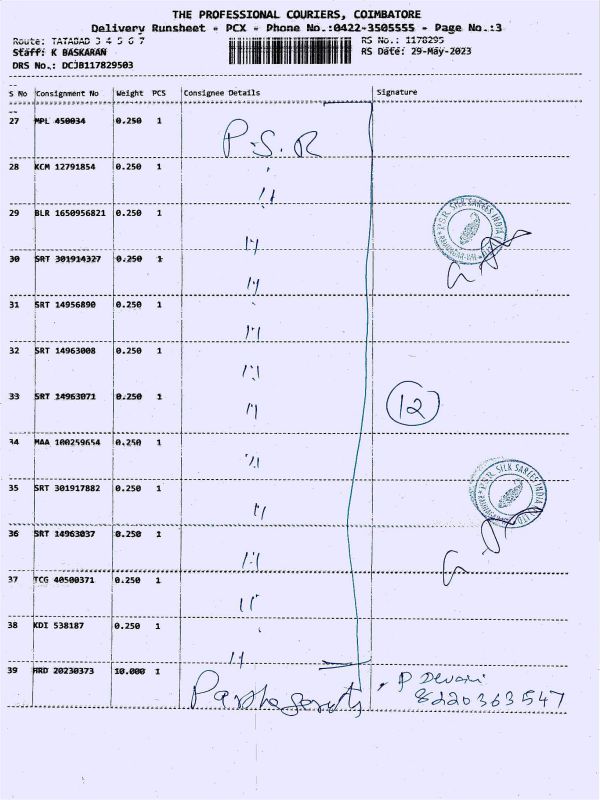 THE PROFESSIONAL COURIERS, COIMBATORE
Delivery Runsheet - PCX - Phone No.:0422-3505555 - Page No.:3
Route: TATABAD 3 4 5 6 7 RS No.: 1178295
Staff: K BASKARAN RS Date: 29-May-2023
DRS No.: DCJB117829503
S No Consignment No Weight PCS Consignee Details Signature
27 MPL 450034 0.250 1 P.S.R
28 KCM 12791854 0.250 1 "
29 BLR 1650956821 0.250 1 "
P.S.R. SILK SAREES INDIA
30 SRT 301914327 0.250 1 "
31 SRT 14956890 0.250 1 "
32 SRT 14963008 0.250 1 "
33 SRT 14963071 0.250 1 " 12
34 MAA 100259654 0.250 1 "
35 SRT 301917882 0.250 1 "
P.S.R. SILK SAREES INDIA
36 SRT 14963037 0.250 1 "
37 TCG 40500371 0.250 1 "
38 KDI 538187 0.250 1 "
39 HRD 20230373 10.000 1 P Devari
8220363547